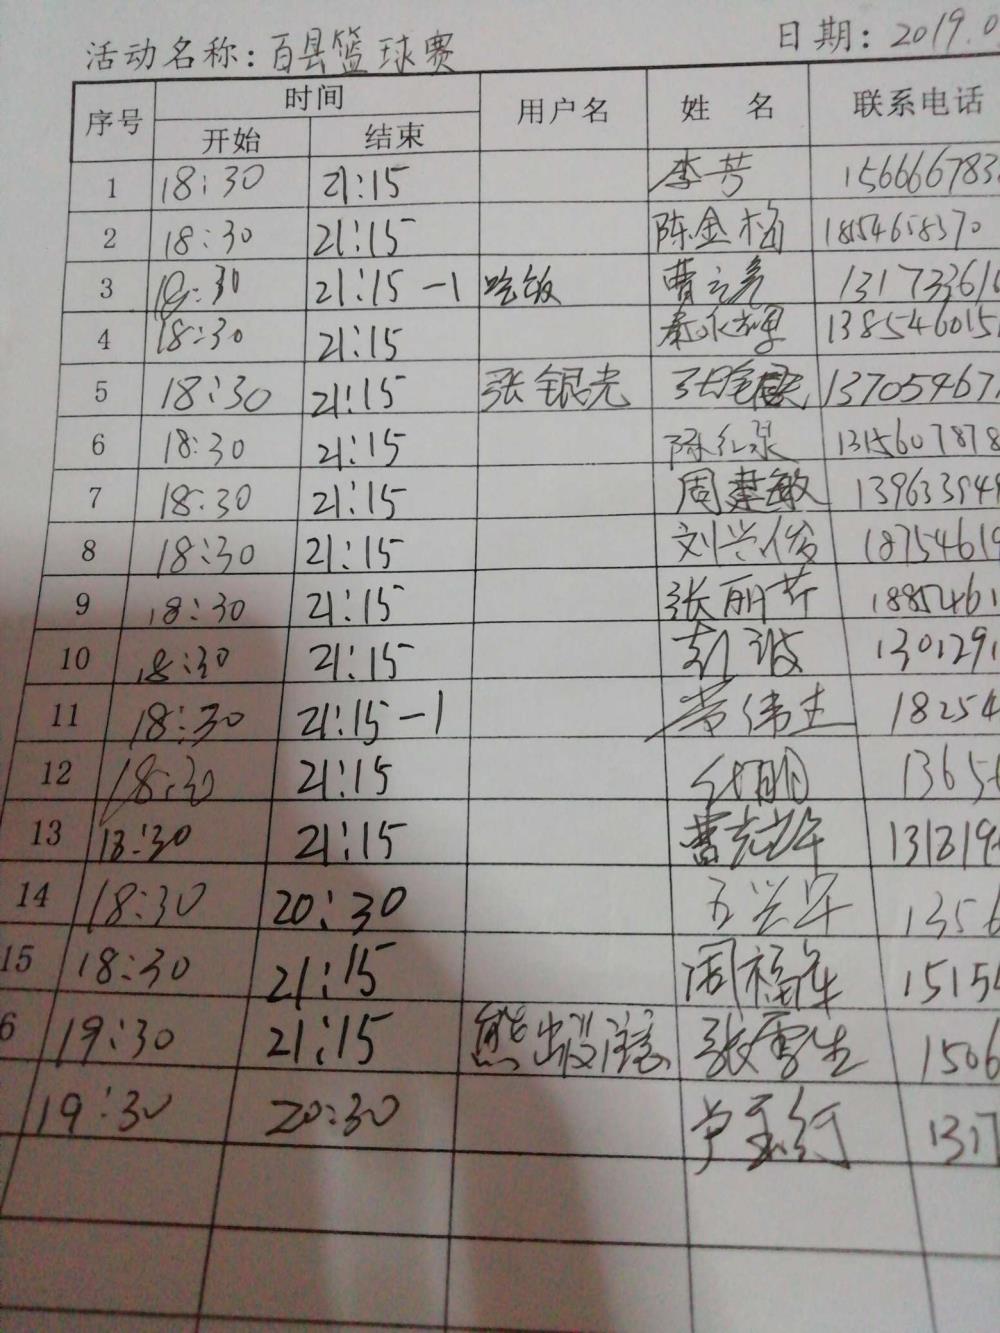 活动名称：百县篮球赛 日期：2019.0
序号 时间 用户名 姓 名 联系电话
开始 结束
1 18:30 21:15 李芳 156666783
2 18:30 21:15 陈金梅 18154658370
3 18:30 21:15-1 吃饭 曹 131733616
4 18:30 21:15 138546015
5 18:30 21:15 张银光 13705467
6 18:30 21:15 陈红泉 1315607878
7 18:30 21:15 周建敏
8 18:30 21:15 刘兴俊 18754619
9 18:30 21:15 张丽芹 1885461
10 18:30 21:15 彭波 1301291
11 18:30 21:15-1 18254
12 18:30 21:15 1365
13 18:30 21:15 曹 131819
14 18:30 20:30 1356
15 18:30 21:15 周福年 1515
6 19:30 21:15 熊出没注意 张雪生 1506
19:30 20:30 1317